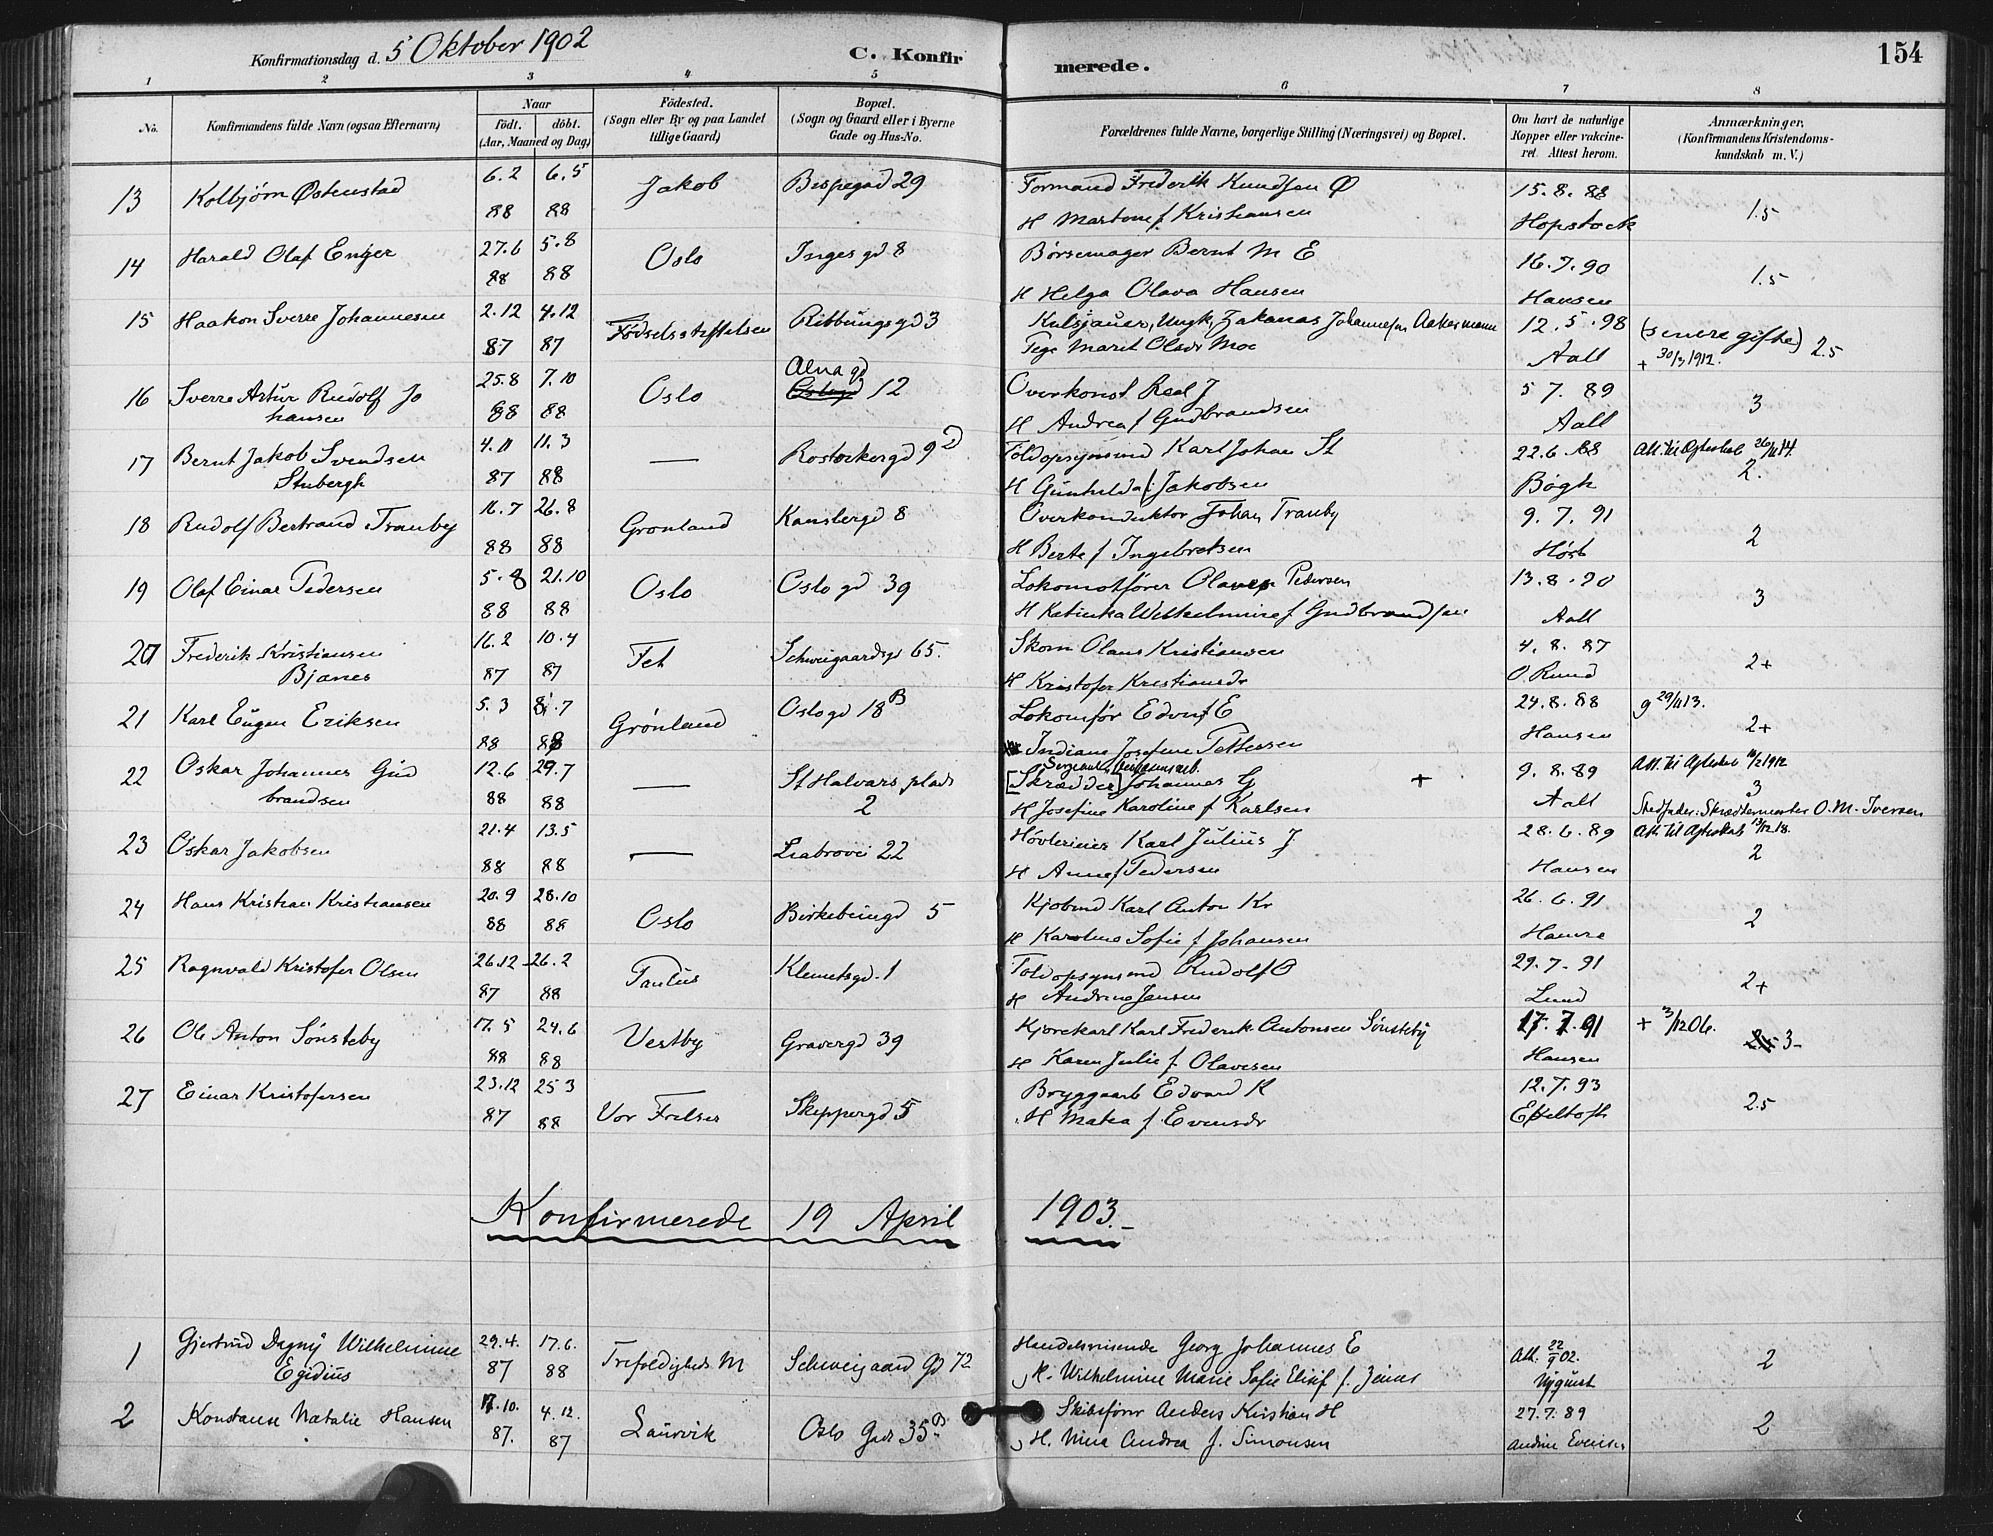 Konfirmationsdag d. 5 Oktober 1902 C. Konfir merede. 154
1 2 3 4 5 6 7 8
No. Konfirmandens fulde Navn (ogsaa Efternavn)
Naar
födt. döbt.
(Aar, Maaned og Dag)
Födested.
(Sogn eller By og paa Landet
tillige Gaard)
Bopæl.
(Sogn og Gaard eller i Byerne
Gade og Hus-No.
Forældrenes fulde Navne, borgerlige Stilling (Næringsvei) og Bopæl.
Om havt de naturlige
Kopper eller vakcine-
ret. Attest herom.
Anmærkninger,
(Konfirmandens Kristendoms-
kundskab m. V.)
13 Kolbjörn Østenstad 6.2 6.5 Jakob Bispegad 29 Formand Frederik Knudsen Ø 15.8.88
88 88 H Martine f Kristiansen Hopstock 1.5
14 Harald Olaf Enger 27.6 5.8 Oslo Inges gd 8 Børsemager Bernt M E 16.7.90
88 88 H Helga Olava Hansen Hansen 1.5
15 Haakon Sverre Johannesen 2.12 4.12 Födselsstiftelsen Ribbungsgd 3 Kulsjauer, Ungk, Zakarias Johannesen Aakermann 12.5.98 (senere gifte)
87 87 Pige Marit Olsdr Moe Aall + 30/3 1912. 2.5
16 Sverre Artur Rudolf Jo 25.8 7.10 Oslo Alna gd
hansen 88 88 12 Overkonst J 5 7. 89
H Andrea f Gudbrandsen Aall 3
17 Bernt Jakob Svendsen 4.11 11.3 — Rostockergd 9 D Toldopsynsmd Karl Johan St 22.6 88 Att. til
Stubergh 87 88 H Gunhilda f. Jakobsen Bögh 2.
18 Rudolf Bertrand Tranby 16.7 26.8 Grønland Kanslergd 8 Overkonduktør Johan Tranby 9.7.91
88 88 H Berte f Ingebretsen Høst 2
19 Olaf Einar Pedersen 5.8 21.10 Oslo Oslo gd 39 Lokomotfører Olaves Pedersen 13.8.90
88 88 H Katinka Wilhelmine f Gudbrandsen Aall 3
20 Frederik Kristiansen 16.2 10.4 Fet Schweigaardsgd 65. Skom Olaus Kristiansen 4.8.87
Bjanes 87 87 H Kristofa Kristiansdr O Ruud 2+
21 Karl Eugen Eriksen 5.3 8.7 Grönland Oslogd 18 B Lokomfør Edvard E 24.8.88 g 29/11 13.
88 88 Indiana Josefine Pettersen Hansen 2+
22 Oskar Johannes Gud 12.6 29.7 — St Halvars plads Sergeant
brandsen 88 88 2 [Skrædder] Johannes G + 9.8.89
H Josefine Karoline f Karlsen Aall 3
Stedfader: Skræddermester O.M. Iversen
23 Oskar Jakobsen 21.4 13.5 — Liabrovei 22 Høvlerieier Karl Julius J 28.6.89
88 88 H Anne f Pedersen Hansen 2
24 Hans Kristian Kristiansen 20.9 28.10 Oslo Birkebeingd 5 Kjøbmd Karl Anton Kr 26.6.91
88 88 H Karoline Sofie f Johansen Hamre 2
25 Ragnvald Kristofer Olsen 26.12 26.2 Paulus Klemetsgd. 1 Toldopsynsmd Rudolf O 29.7.91
87 88 H Andrine Jensen Lund 2+
26 Ole Anton Sönsteby 17.5 24.6 Vestby Gravergd 39 Kjørekarl Karl Frederik Antonsen Sönsteby 17.7.91 + 3/12 06.
88 88 H Karen Julie f. Olavesen Hansen 3-
27 Einar Kristofersen 23.12 25 3 Vor Frelser Skippergd 5 Bryggearb Edvard K 12.7.93
87 88 H Matea f. Evensdr Effeltoft 2.5
Konfirmerede 19 April 1903.-
1 Gjertrud Dagny Wilhelmine 29.4. 17.6. Trefoldigheds M Schweigaard Gd 72 Handelsreisende Georg Johannes E Att. 22/9 02.
Egidius 87 88 H. Wilhelmine Marie Sofie Elisif f. Jenius Nyquist 2
2 Konstanse Natalie Hansen 17.10. 4.12. Laurvik Oslo Gade 35 B Skibsfører Anders Kristian H 27.7.89
87. 87 H. Nina Andrea f. Simonsen Andrine Evensen 2